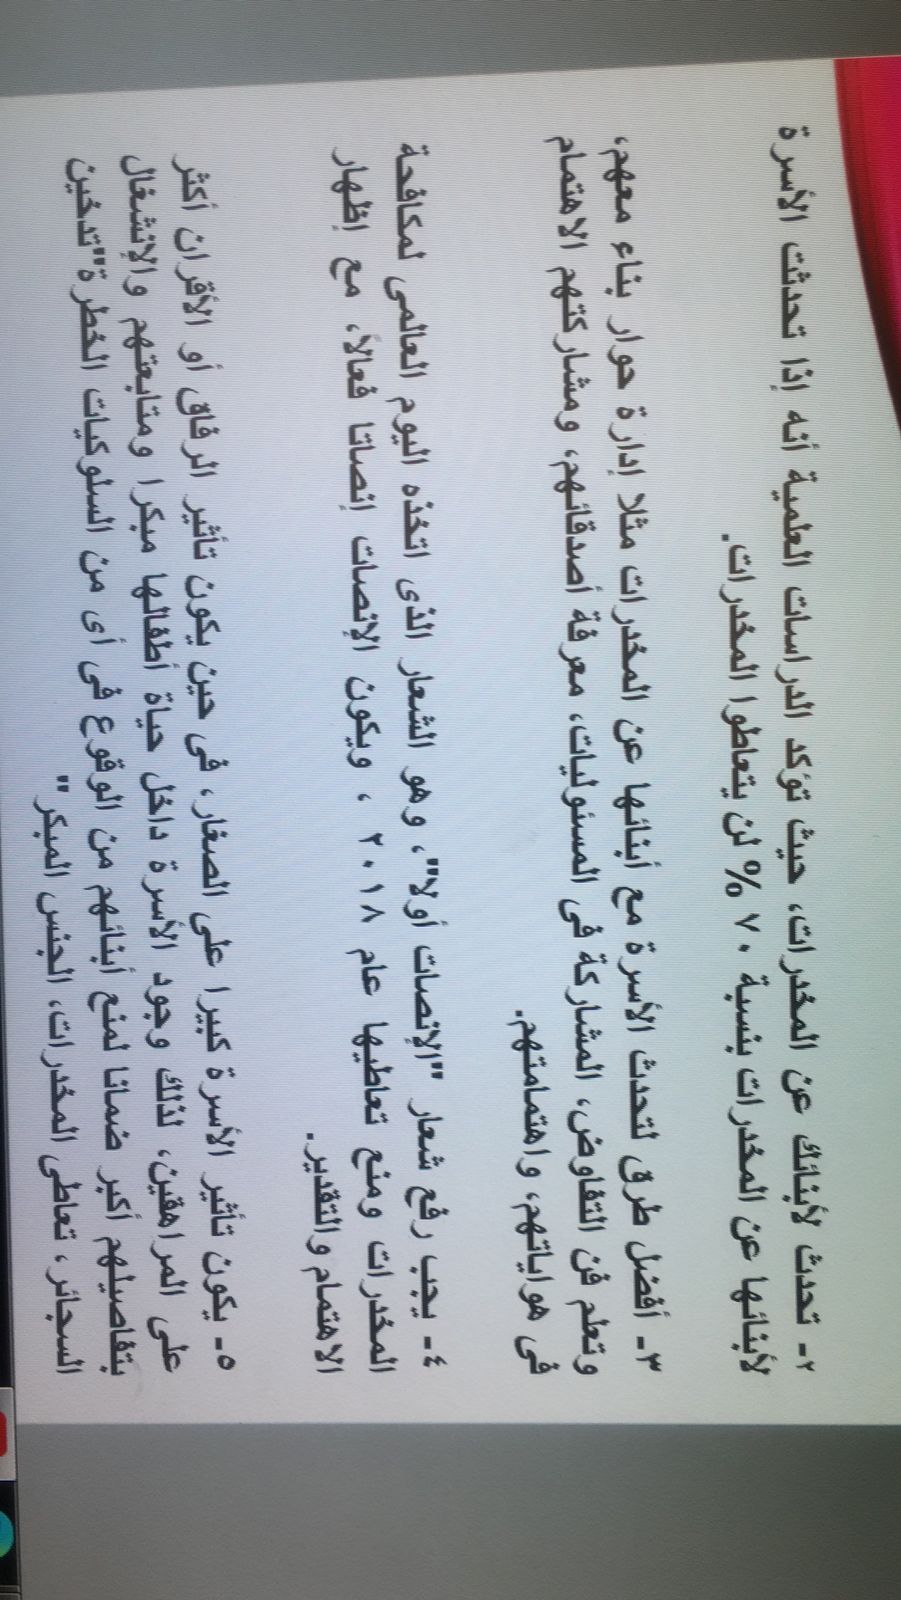 ٢- تحدث لأبنائك عن المخدرات، حيث تؤكد الدراسات العلمية أنه إذا تحدثت الأسرة
لأبنائها عن المخدرات بنسبة ٧٠ % لن يتعاطوا المخدرات.
٣- أفضل طرق لتحدث الأسرة مع أبنائها عن المخدرات مثلا إدارة حوار بناء معهم،
وتعلم فن التفاوض، المشاركة فى المسئوليات، معرفة أصدقائهم، ومشاركتهم الاهتمام
فى هواياتهم، واهتمامتهم.
٤- يجب رفع شعار "الإنصات أولا"، وهو الشعار الذى اتخذه اليوم العالمى لمكافحة
المخدرات ومنع تعاطيها عام ٢٠١٨ ، ويكون الإنصات إنصاتا فعالاً، مع إظهار
الاهتمام والتقدير.
٥- يكون تأثير الأسرة كبيرا على الصغار، فى حين يكون تأثير الرفاق أو الأقران أكثر
على المراهقين، لذلك وجود الأسرة داخل حياة أطفالها مبكرا ومتابعتهم والإنشغال
بتفاصيلهم أكبر ضمانا لمنع أبنائهم من الوقوع فى أى من السلوكيات الخطرة"تدخين
السجائر، تعاطى المخدرات، الجنس المبكر"